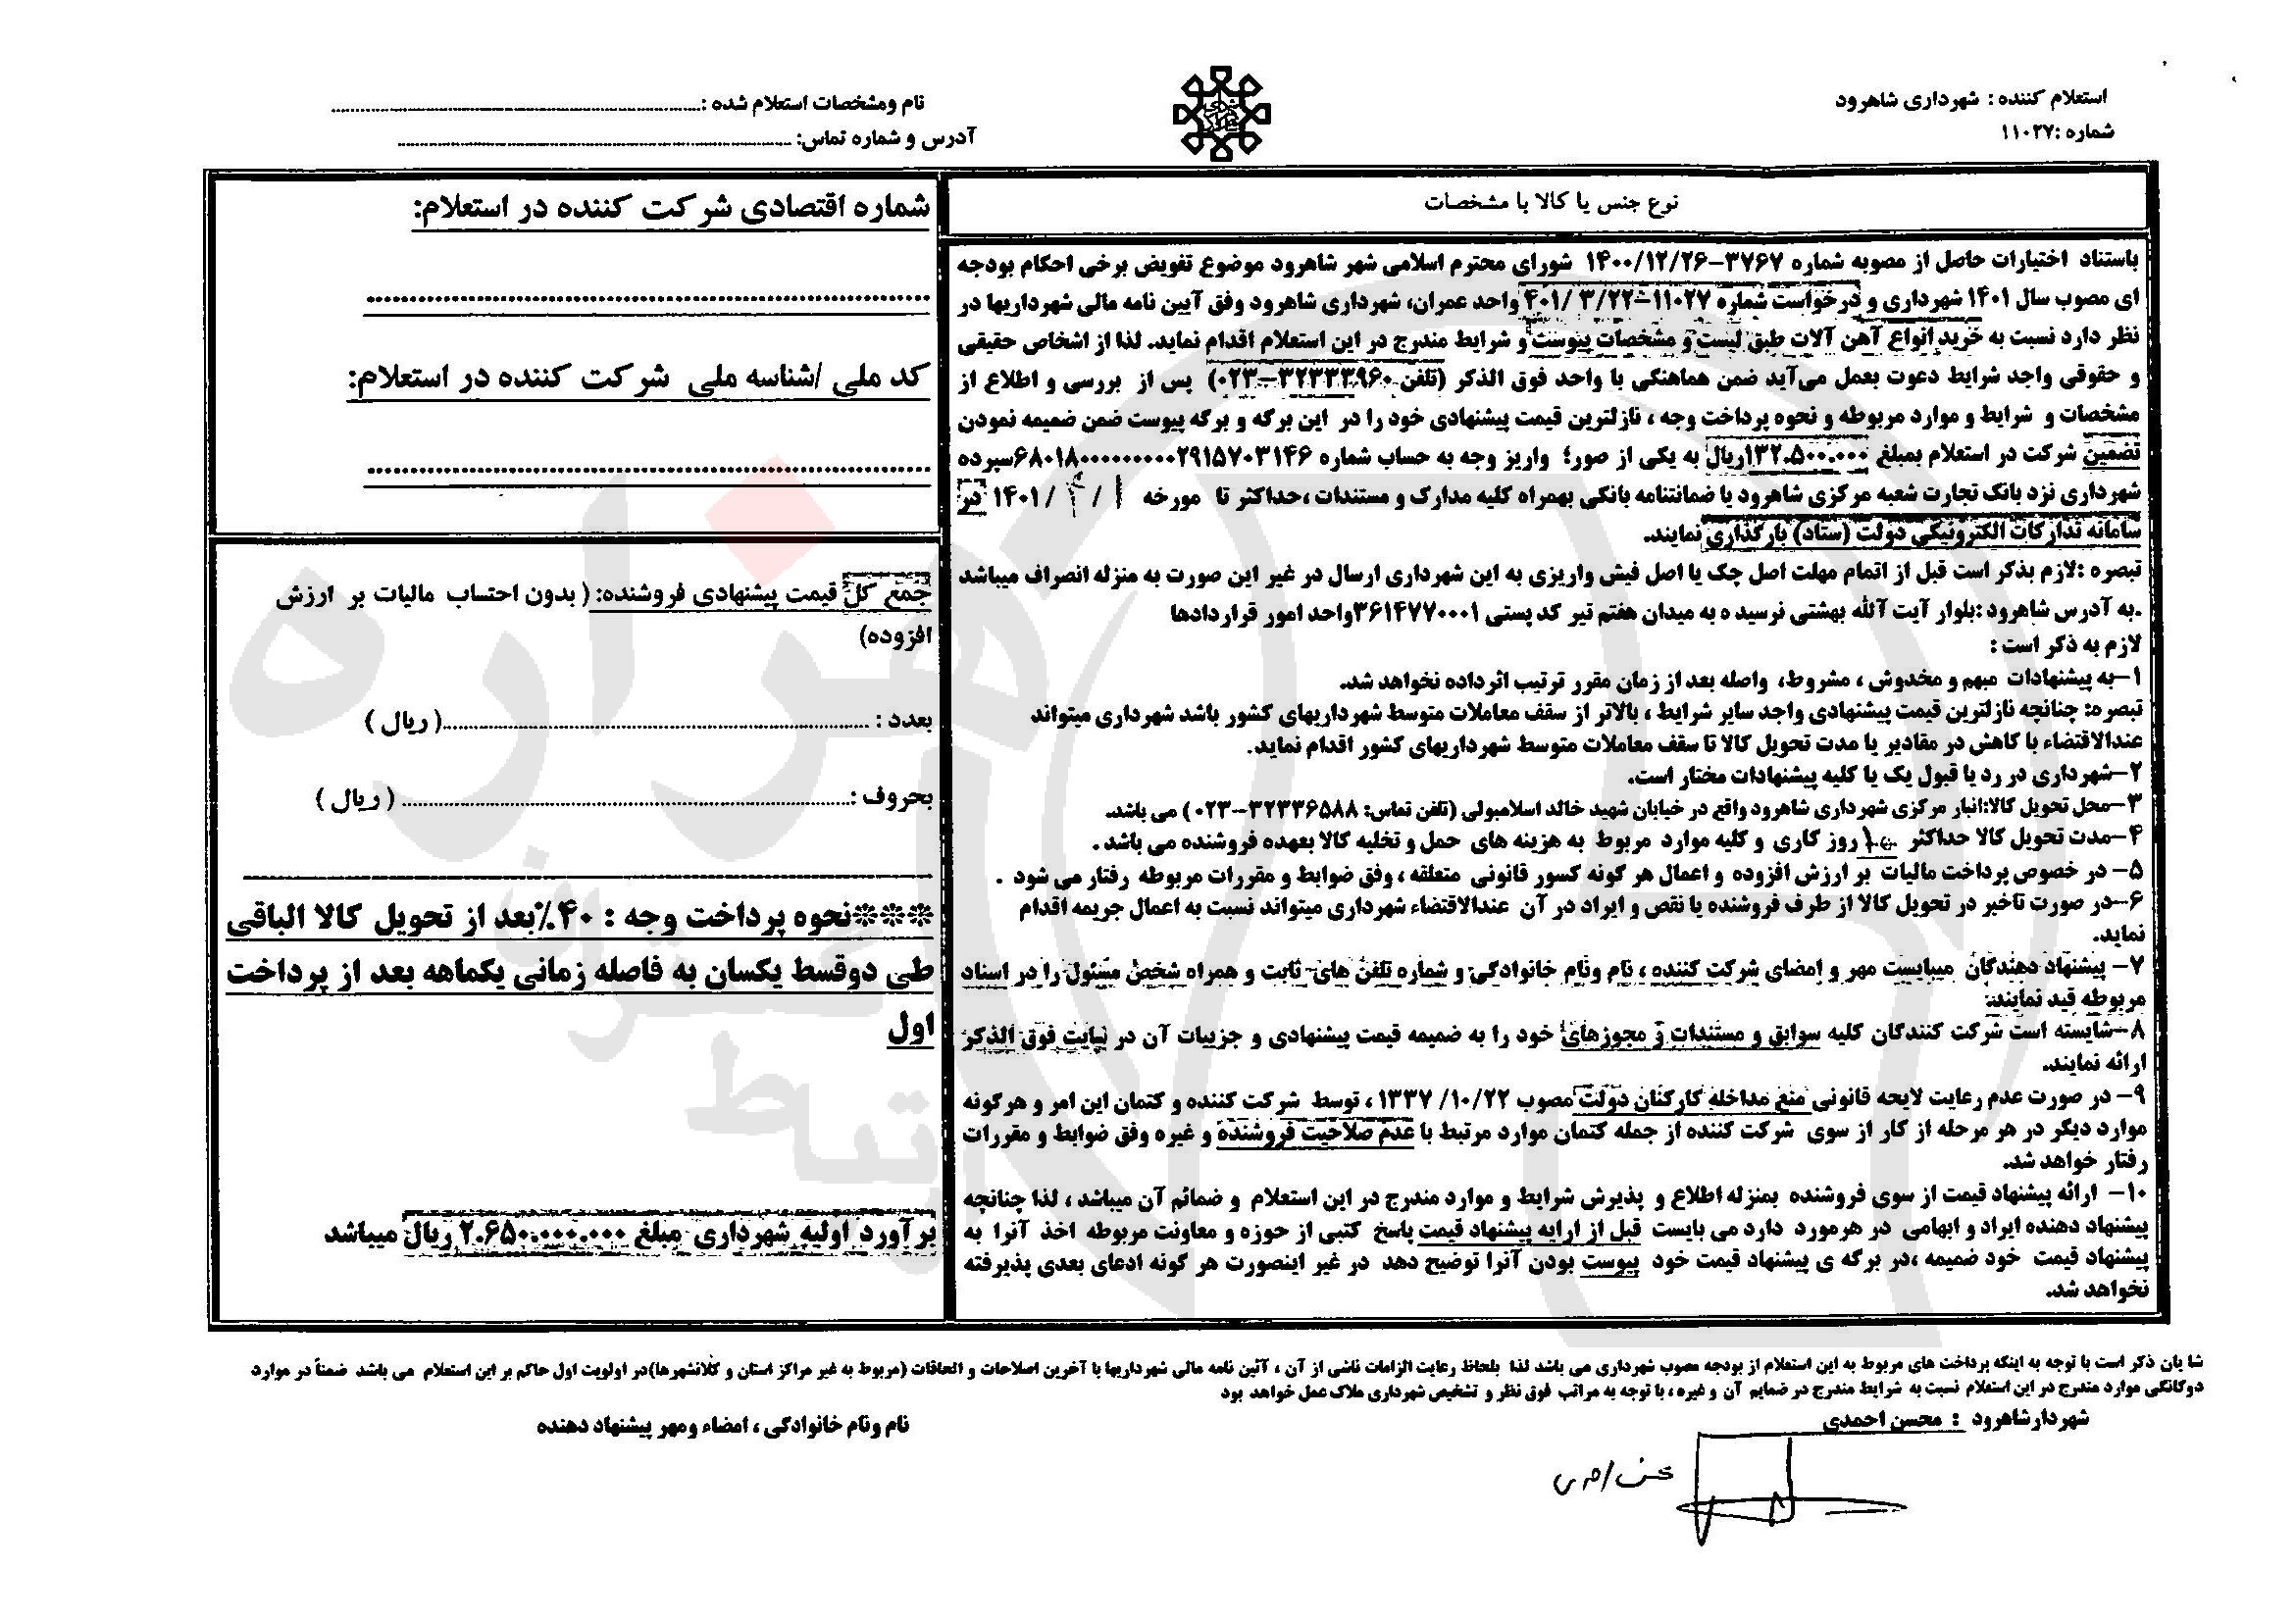 استعلام کننده : شهرداری شاهرود
شماره :۱۱۰۲۷
نام ومشخصات استعلام شده :
آدرس و شماره تماس:
نوع جنس یا کالا با مشخصات
باستناد اختیارات حاصل از مصوبه شماره ۳۷۶۷-۱۴۰۰/۱۲/۲۶ شورای محترم اسلامی شهر شاهرود موضوع تفویض برخی احکام بودجه
ای مصوب سال ۱۴۰۱ شهرداری و درخواست شماره ۱۱۰۲۷-۴۰۱/ ۳/۲۲ واحد عمران، شهرداری شاهرود وفق آیین نامه مالی شهرداریها در
نظر دارد نسبت به خرید انواع آهن آلات طبق لیست و مشخصات پیوست و شرایط مندرج در این استعلام اقدام نماید. لذا از اشخاص حقیقی
و حقوقی واجد شرایط دعوت بعمل می‌آید ضمن هماهنگی با واحد فوق الذکر (تلفن ۳۲۳۳۳۹۶۰-۰۲۳) پس از بررسی و اطلاع از
مشخصات و شرایط و موارد مربوطه و نحوه پرداخت وجه ، نازلترین قیمت پیشنهادی خود را در این برگه و برگه پیوست ضمن ضمیمه نمودن
تضمین شرکت در استعلام بمبلغ ۱۳۲.۵۰۰.۰۰۰ریال به یکی از صور؛ واریز وجه به حساب شماره ۶۸۰۱۸۰۰۰۰۰۰۰۰۰۲۹۱۵۷۰۳۱۴۶سپرده
شهرداری نزد بانک تجارت شعبه مرکزی شاهرود یا ضمانتنامه بانکی بهمراه کلیه مدارک و مستندات ،حداکثر تا مورخه ۱ / ۴ / ۱۴۰۱ در
سامانه تدارکات الکترونیکی دولت (ستاد) بارگذاری نمایند.
تبصره :لازم بذکر است قبل از اتمام مهلت اصل چک یا اصل فیش واریزی به این شهرداری ارسال در غیر این صورت به منزله انصراف میباشد
.به آدرس شاهرود :بلوار آیت آلله بهشتی نرسیده به میدان هفتم تیر کد پستی ۳۶۱۴۷۷۰۰۰۱واحد امور قراردادها
لازم به ذکر است :
۱-به پیشنهادات مبهم و مخدوش ، مشروط، واصله بعد از زمان مقرر ترتیب اثرداده نخواهد شد.
تبصره: چنانچه نازلترین قیمت پیشنهادی واجد سایر شرایط ، بالاتر از سقف معاملات متوسط شهرداریهای کشور باشد شهرداری میتواند
عندالاقتضاء با کاهش در مقادیر یا مدت تحویل کالا تا سقف معاملات متوسط شهرداریهای کشور اقدام نماید.
۲-شهرداری در رد یا قبول یک یا کلیه پیشنهادات مختار است.
۳-محل تحویل کالا:انبار مرکزی شهرداری شاهرود واقع در خیابان شهید خالد اسلامبولی (تلفن تماس: ۳۲۳۳۶۵۸۸-۰۲۳) می باشد.
۴-مدت تحویل کالا حداکثر روز کاری و کلیه موارد مربوط به هزینه های حمل و تخلیه کالا بعهده فروشنده می باشد .
۵- در خصوص پرداخت مالیات بر ارزش افزوده و اعمال هر گونه کسور قانونی متعلقه ، وفق ضوابط و مقررات مربوطه رفتار می شود .
۶-در صورت تاخیر در تحویل کالا از طرف فروشنده یا نقص و ایراد در آن عندالاقتضاء شهرداری میتواند نسبت به اعمال جریمه اقدام
نماید.
۷- پیشنهاد دهندگان میبایست مهر و امضای شرکت کننده ، نام ونام خانوادگی و شماره تلفن های ثابت و همراه شخص مسئول را در اسناد
مربوطه قید نمایند.
۸-شایسته است شرکت کنندگان کلیه سوابق و مستندات و مجوزهای خود را به ضمیمه قیمت پیشنهادی و جزییات آن در سایت فوق الذکر
ارائه نمایند.
۹- در صورت عدم رعایت لایحه قانونی منع مداخله کارکنان دولت مصوب ۱۰/۲۲/ ۱۳۳۷ ، توسط شرکت کننده و کتمان این امر و هرگونه
موارد دیگر در هر مرحله از کار از سوی شرکت کننده از جمله کتمان موارد مرتبط با عدم صلاحیت فروشنده و غیره وفق ضوابط و مقررات
رفتار خواهد شد.
۱۰- ارائه پیشنهاد قیمت از سوی فروشنده بمنزله اطلاع و پذیرش شرایط و موارد مندرج در این استعلام و ضمائم آن میباشد ، لذا چنانچه
پیشنهاد دهنده ایراد و ابهامی در هرمورد دارد می بایست قبل از ارایه پیشنهاد قیمت پاسخ کتبی از حوزه و معاونت مربوطه اخذ آنرا به
پیشنهاد قیمت خود ضمیمه ،در برگه ی پیشنهاد قیمت خود پیوست بودن آنرا توضیح دهد در غیر اینصورت هر گونه ادعای بعدی پذیرفته
نخواهد شد.
شماره اقتصادی شرکت کننده در استعلام:
کد ملی /شناسه ملی شرکت کننده در استعلام:
جمع کل قیمت پیشنهادی فروشنده: ( بدون احتساب مالیات بر ارزش
افزوده)
بعدد : ( ریال )
بحروف : ( ریال )
***نحوه پرداخت وجه : ۴۰٪بعد از تحویل کالا الباقی
طی دوقسط یکسان به فاصله زمانی یکماهه بعد از پرداخت
اول
برآورد اولیه شهرداری مبلغ ۲.۶۵۰.۰۰۰.۰۰۰ ریال میباشد
شایان ذکر است با توجه به اینکه پرداخت های مربوط به این استعلام از بودجه مصوب شهرداری می باشد لذا بلحاظ رعایت الزامات ناشی از آن ، آئین نامه مالی شهرداریها با آخرین اصلاحات و الحاقات (مربوط به غیر مراکز استان و کلانشهرها)در اولویت اول حاکم بر این استعلام می باشد ضمناً در موارد
دوگانگی موارد مندرج در این استعلام نسبت به شرایط مندرج در ضمایم آن و غیره ، با توجه به مراتب فوق نظر و تشخیص شهرداری ملاک عمل خواهد بود
شهردارشاهرود : محسن احمدی
نام ونام خانوادگی ، امضاء ومهر پیشنهاد دهنده
هزاره